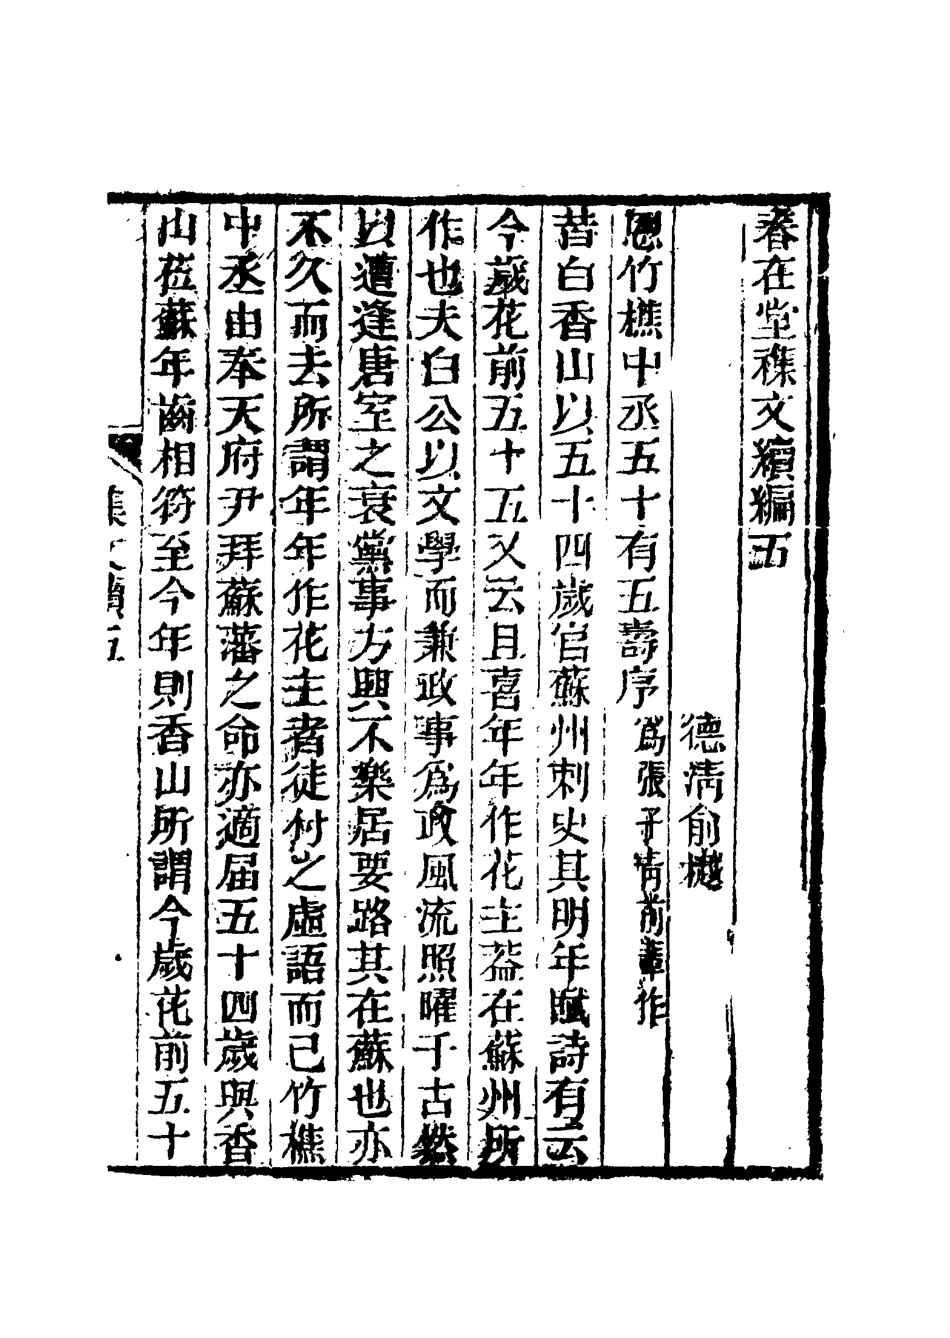 春在堂襍文續編五
德淸俞樾
恩竹樵中丞五十有五壽序爲張子靑前輩作
昔白香山以五十四歲官蘇州刺史其明年賦詩有云
今歲花前五十五又云且喜年年作花主葢在蘇州所
作也夫白公以文學而兼政事爲政風流照曜千古然
以遭逢唐室之衰黨事方興不樂居要路其在蘇也亦
不久而去所謂年年作花主者徒付之虛語而已竹樵
中丞由奉天府尹拜蘇藩之命亦適届五十四歲與香
山莅蘇年齒相符至今年則香山所謂今歲花前五十
集文續五